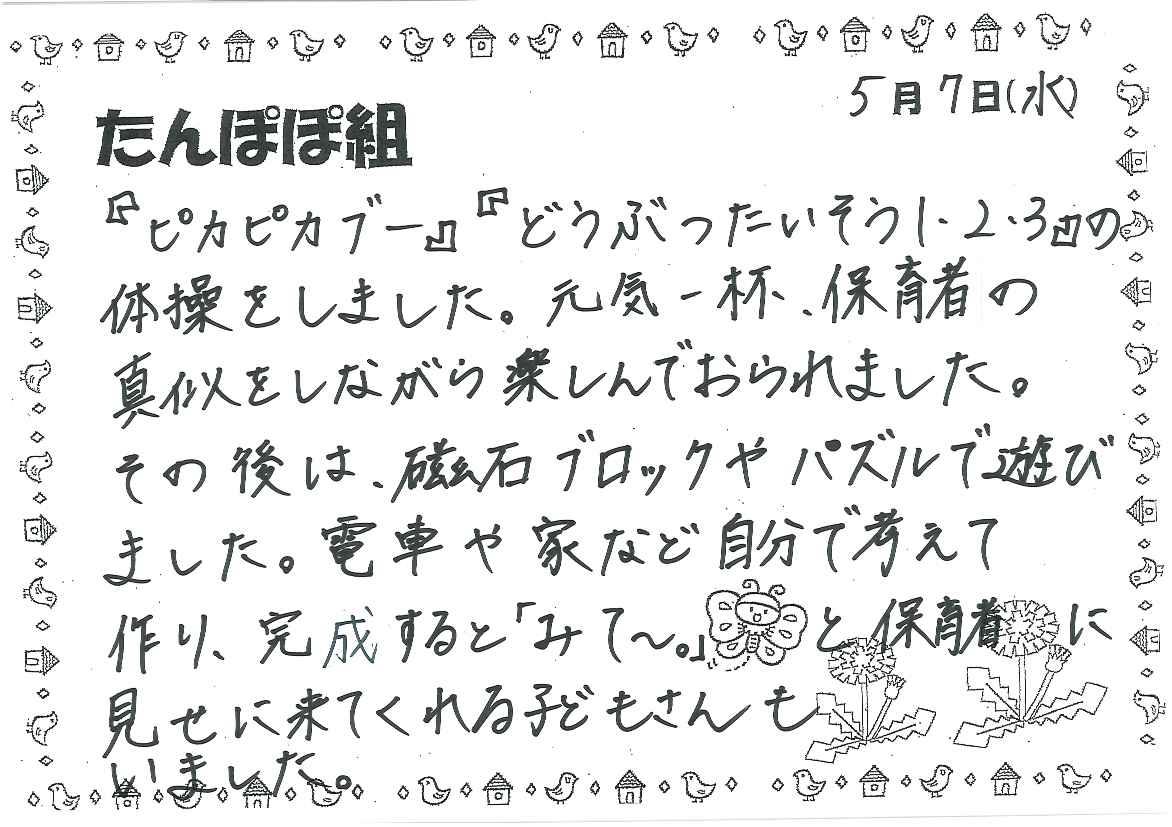 5月7日(水)
たんぽぽ組
『ピカピカブー』『どうぶったいそう1・2・3』の
体操をしました。元気一杯、保育者の
真似をしながら楽しんでおられました。
その後は、磁石ブロックやパズルで遊び
ました。電車や家など自分で考えて
作り、完成すると「みて〜。」と保育者に
見せに来てくれる子どもさんも
いました。